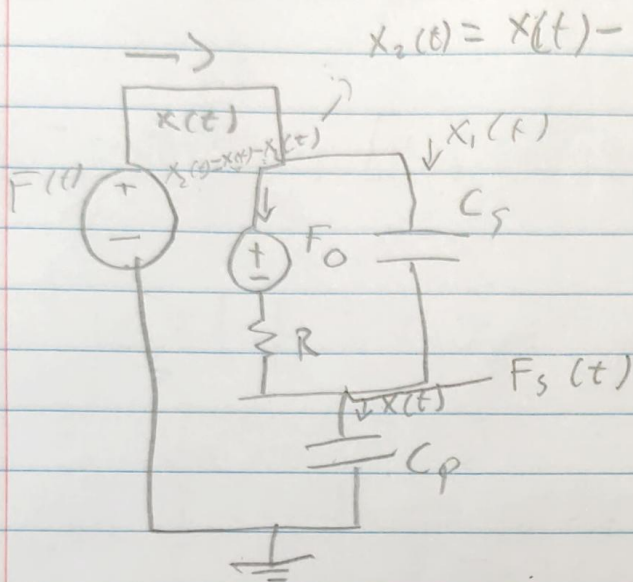 x₂(t) = x(t) –
x(t)
x₂(t)=x(t)-x₁(t)
x₁(t)
F(t)
+
–
Cₛ
F₀
+
–
R
Fₛ(t)
x(t)
Cₚ